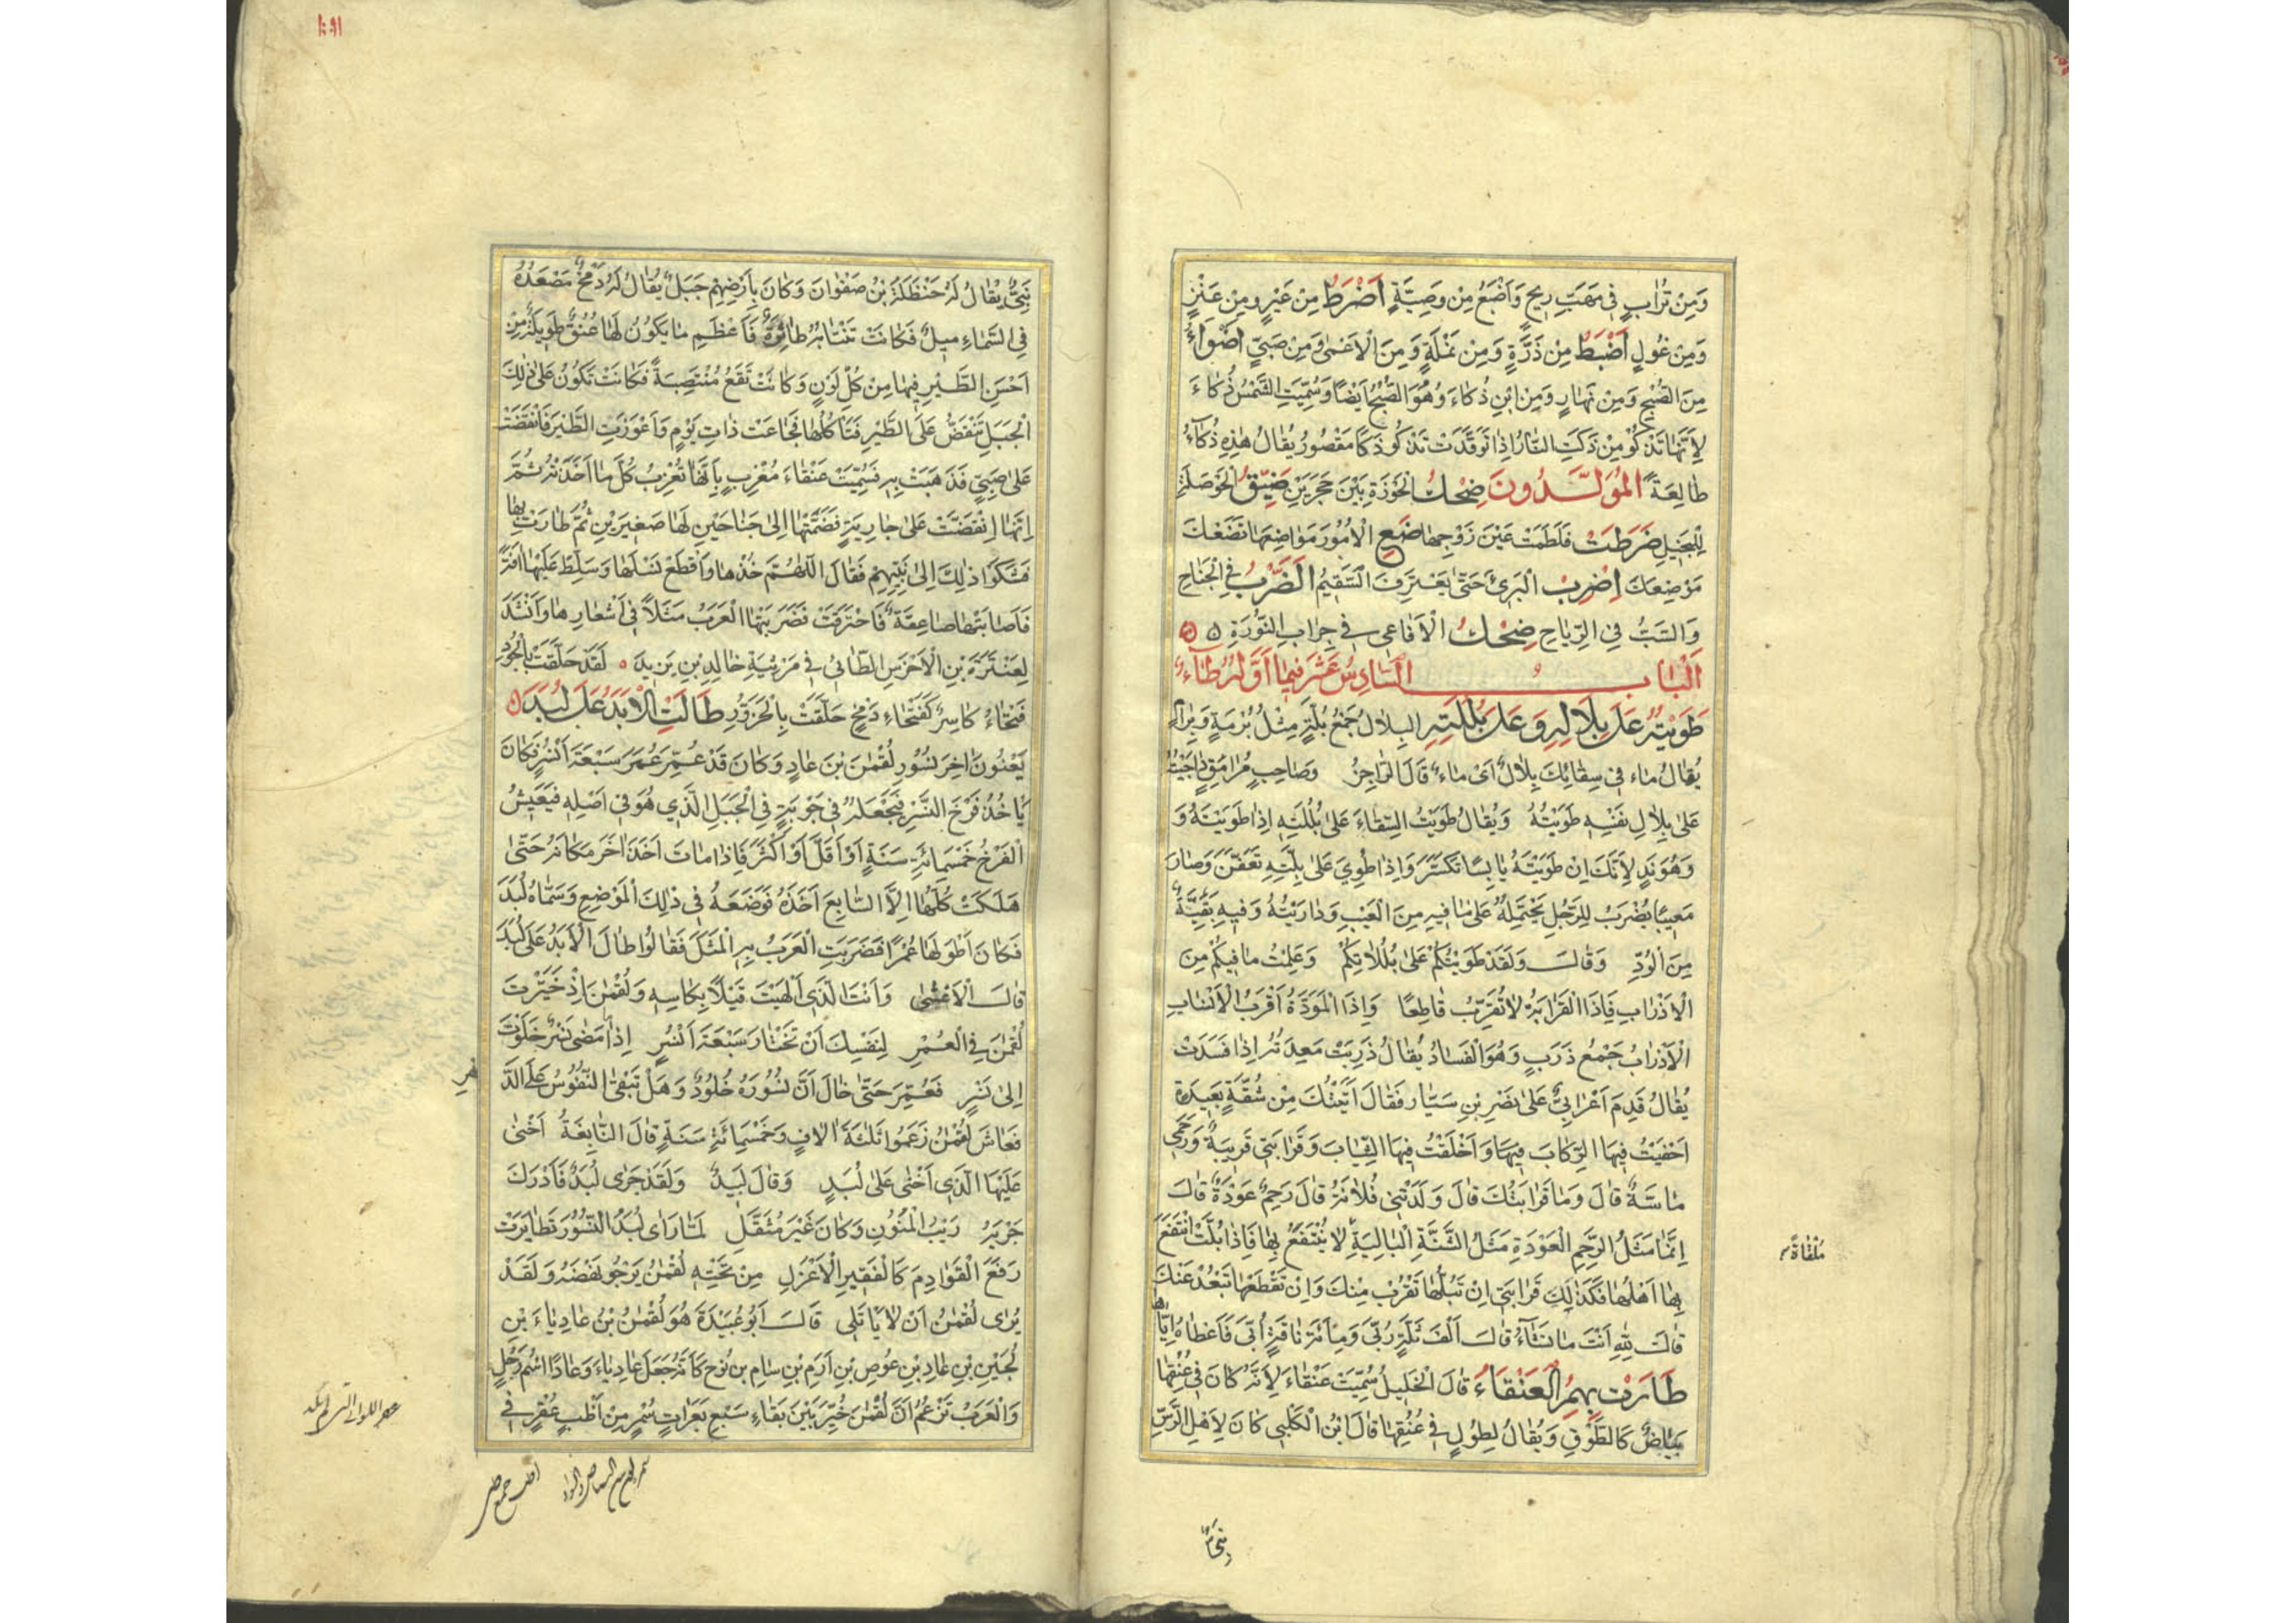 وَمِنْ تُرَابٍ فِي مَهَبِّ رِيحٍ وَأَضْيَعُ مِنْ وَصِيَّةٍ أَضْرَطُ مِنْ عَيْرٍ وَمِنْ عَنْزٍ
وَمِنْ غُولٍ أَضْبَطُ مِنْ ذَرَّةٍ وَمِنْ نَمْلَةٍ وَمِنَ الْأَعْمٰى وَمِنْ صَبِيٍّ أَضْوَاءُ
مِنَ الصُّبْحِ وَمِنْ نَهَارٍ وَمِنِ ابْنِ ذُكَاءَ وَهُوَ الصُّبْحُ أَيْضًا وَسُمِّيَتِ الشَّمْسُ ذُكَاءَ
لِأَنَّهَا تَذْكُو مِنْ ذَكَتِ النَّارُ إِذَا تَوَقَّدَتْ تَذْكُو ذَكًا مَقْصُورٌ يُقَالُ هٰذِهِ ذُكَاءُ
طَالِعَةً الْمُوَلَّدُونَ ضِحْكُ الْجَوْزَةِ بَيْنَ حَجَرَيْنِ ضَيِّقُ الْحَوْصَلَةِ
لِلْبَخِيلِ ضَرَطَتْ فَلَطَمَتْ عَيْنَ زَوْجِهَا ضَعِ الْأُمُورَ مَوَاضِعَهَا تَضَعْكَ
مَوْضِعَكَ إِضْرِبِ الْبَرِيَّ حَتّٰى يَعْتَرِفَ السَّقِيمُ الضَّرْبُ فِي الْجَنَاحِ
وَالسَّبُّ فِي الرِّيَاحِ ضِحْكُ الْأَفَاعِي فِي جِرَابِ النُّورَةِ
اَلْبَابُ السَّادِسُ عَشَرَ فِيمَا أَوَّلُهُ طَاءٌ
طَوَيْتُهُ عَلَى بِلَالِهِ وَعَلَى بُلُلَتِهِ الْبِلَالُ جَمْعُ بُلَّةٍ مِثْلُ بُرْمَةٍ وَبِرَامٍ
يُقَالُ مَاءٌ فِي سِقَائِكَ بِلَالٌ أَيْ مَاءٌ قَالَ الرَّاجِزُ وَصَاحِبٍ مُرَامِقٍ دَاجَيْتُهُ
عَلٰى بِلَالِ نَفْسِهِ طَوَيْتُهُ وَيُقَالُ طَوَيْتُ السِّقَاءَ عَلٰى بُلُلَتِهِ إِذَا طَوَيْتَهُ وَ
وَهُوَ نَدٍ لِأَنَّكَ إِنْ طَوَيْتَهُ يَابِسًا تَكَسَّرَ وَإِذَا طُوِيَ عَلٰى بِلَّتِهِ تَعَفَّنَ وَصَارَ
مَعِيبًا يُضْرَبُ لِلرَّجُلِ يَحْتَمِلُهُ عَلٰى مَا فِيهِ مِنَ الْعَيْبِ وَدَارَيْتُهُ وَفِيهِ بَقِيَّةٌ
مِنَ الْوُدِّ وَقَالَ وَلَقَدْ طَوَيْتُكُمْ عَلٰى بُلُلَاتِكُمْ وَعَلِمْتُ مَا فِيكُمْ مِنَ
الْأَذْرَابِ فَإِذَا الْقَرَابَةُ لَا تُقَرِّبُ قَاطِعًا وَإِذَا الْمَوَدَّةُ أَقْرَبُ الْأَنْسَابِ
الْأَذْرَابُ جَمْعُ ذَرَبٍ وَهُوَ الْفَسَادُ يُقَالُ ذَرِبَتْ مَعِدَتُهُ إِذَا فَسَدَتْ
يُقَالُ قَدِمَ أَعْرَابِيٌّ عَلٰى نَصْرِ بْنِ سَيَّارٍ فَقَالَ أَتَيْتُكَ مِنْ شُقَّةٍ بَعِيدَةٍ
أَحْفَيْتُ فِيهَا الرِّكَابَ فِيهَا وَأَخْلَقْتُ فِيهَا الثِّيَابَ وَقَرَابَتِي قَرِيبَةٌ وَرَحِمِي
مَاسَّةٌ قَالَ وَمَا قَرَابَتُكَ قَالَ وَلَدَتْنِي فُلَانَةُ قَالَ رَحِمٌ عَوْدَةٌ قَالَ
إِنَّمَا مَثَلُ الرَّحِمِ الْعَوْدَةِ مَثَلُ الشَّنَّةِ الْبَالِيَةِ لَا يُنْتَفَعُ بِهَا فَإِذَا بُلَّتْ انْتَفَعَ
مُلْقَاةً
بِهَا أَهْلُهَا فَكَذٰلِكَ قَرَابَتِي إِنْ تَبُلَّهَا تَقْرُبْ مِنْكَ وَإِنْ تَقْطَعْهَا تَبْعُدْ عَنْكَ
قَالَ لِلّٰهِ أَنْتَ مَا تَشَاءُ قَالَ أَلْفَ شَاةٍ رُبَّى وَمِائَةَ نَاقَةٍ أُبَّى فَأَعْطَاهُ إِيَّاهَا
طَارَتْ بِهِمُ الْعَنْقَاءُ قَالَ الْخَلِيلُ سُمِّيَتْ عَنْقَاءَ لِأَنَّهُ كَانَ فِي عُنُقِهَا
بَيَاضٌ كَالطَّوْقِ وَيُقَالُ لِطُولٍ فِي عُنُقِهَا قَالَ ابْنُ الْكَلْبِي كَانَ لِأَهْلِ الرَّسِّ
نَبِيٌّ
نَبِيٌّ يُقَالُ لَهُ حَنْظَلَةُ بْنُ صَفْوَانَ وَكَانَ بِأَرْضِهِمْ جَبَلٌ يُقَالُ لَهُ دَمْخٌ مَصْعَدُهُ
فِي السَّمَاءِ مِيلٌ فَكَانَتْ تَنْتَابُهُ طَائِرَةٌ فَأَعْظَمِ مَا يَكُونُ لَهَا عُنُقٌ طَوِيلَةٌ مِنْ
أَحْسَنِ الطَّيْرِ فِيهَا مِنْ كُلِّ لَوْنٍ وَكَانَتْ تَقَعُ مُنْتَصِبَةً فَكَانَتْ تَكُونُ عَلٰى ذٰلِكَ
الْجَبَلِ تَنْقَضُّ عَلَى الطَّيْرِ فَتَأْكُلُهَا فَجَاعَتْ ذَاتَ يَوْمٍ وَأَعْوَزَتِ الطَّيْرَ فَانْقَضَّتْ
عَلٰى صَبِيٍّ فَذَهَبَتْ بِهِ فَسُمِّيَتْ عَنْقَاءَ مُغْرِبٍ بِأَنَّهَا تُغْرِبُ كُلَّ مَا أَخَذَتْهُ ثُمَّ
إِنَّهَا انْقَضَّتْ عَلٰى جَارِيَةٍ فَضَمَّتْهَا إِلٰى جَنَاحَيْنِ لَهَا صَغِيرَيْنِ ثُمَّ طَارَتْ بِهَا
فَشَكَوْا ذٰلِكَ إِلٰى نَبِيِّهِمْ فَقَالَ اللّٰهُمَّ خُذْهَا وَاقْطَعْ نَسْلَهَا وَسَلِّطْ عَلَيْهَا آفَةً
فَأَصَابَتْهَا صَاعِقَةٌ فَاحْتَرَقَتْ فَضَرَبَتْهَا الْعَرَبُ مَثَلًا فِي أَشْعَارِهَا وَأَنْشَدَ
لِعَنْتَرَةَ بْنِ الْأَخْرَسِ الطَّائِيِّ فِي مَرْثِيَةِ خَالِدِ بْنِ يَزِيدَ لَقَدْ حَلَّقَتْ بِالْجُودِ
فَتْخَاءُ كَاسِرٌ كَفَتْخَاءِ دَمْخٍ حَلَّقَتْ بِالْحَزَوَّرِ طَالَ الْأَبَدُ عَلَى لُبَدَ
يَعْنُونَ آخِرَ نُسُورِ لُقْمٰنَ بْنِ عَادٍ وَكَانَ قَدْ عُمِّرَ عُمَرَ سَبْعَةِ أَنْسُرٍ فَكَانَ
يَأْخُذُ فَرْخَ النَّسْرِ فَيَجْعَلُهُ فِي جَوْبَةٍ فِي الْجَبَلِ الَّذِي هُوَ فِي أَصْلِهِ فَيَعِيشُ
الْفَرْخُ خَمْسَمِائَةِ سَنَةٍ أَوْ أَقَلَّ أَوْ أَكْثَرَ فَإِذَا مَاتَ أَخَذَ آخَرَ مَكَانَهُ حَتّٰى
هَلَكَتْ كُلُّهَا إِلَّا السَّابِعَ أَخَذَهُ فَوَضَعَهُ فِي ذٰلِكَ الْمَوْضِعِ وَسَمَّاهُ لُبَدَ
فَكَانَ أَطْوَلَهَا عُمْرًا فَضَرَبَتِ الْعَرَبُ بِهِ الْمَثَلَ فَقَالُوا طَالَ الْأَبَدُ عَلَى لُبَدَ
قَالَ الْأَعْشٰى وَأَنْتَ الَّذِي أَلْهَيْتَ قَيْلًا بِكَاسِهِ وَلُقْمٰنَ إِذْ خَيَّرْتَ
لُقْمٰنَ فِي الْعُمْرِ لِنَفْسِكَ أَنْ تَخْتَارَ سَبْعَةَ أَنْسُرٍ إِذَا مَا مَضٰى نَسْرٌ خَلَوْتَ
إِلٰى نَسْرٍ فَعُمِّرَ حَتّٰى خَالَ أَنَّ نُسُورَهُ خُلُودٌ وَهَلْ تَبْقَى النُّفُوسُ عَلَى الدَّ
هْرِ
فَعَاشَ لُقْمٰنُ زَعَمُوا ثَلٰثَةَ آلَافٍ وَخَمْسَمِائَةِ سَنَةٍ قَالَ النَّابِغَةُ أَخْنٰى
عَلَيْهَا الَّذِي أَخْنٰى عَلٰى لُبَدٍ وَقَالَ لَبِيدٌ وَلَقَدْ جَرٰى لُبَدٌ فَأَدْرَكَ
جَرْيَهُ رَيْبُ الْمَنُونِ وَكَانَ غَيْرَ مُثَقَّلِ لَمَّا رَاٰى لُبَدُ النُّسُورَ تَطَايَرَتْ
رَفَعَ الْقَوَادِمَ كَالْفَقِيرِ الْأَعْزَلِ مِنْ تَحْتِهِ لُقْمٰنُ يَرْجُو نَهْضَهُ وَلَقَدْ
يُرٰى لُقْمٰنُ أَنْ لَا يَأْتَلِي قَالَ أَبُو عُبَيْدَةَ هُوَ لُقْمٰنُ بْنُ عَادِيَاءَ بْنِ
لُجَيْنِ بْنِ عَادِ بْنِ عُوصِ بْنِ أَرَمِ بْنِ سَامِ بْنِ نُوحٍ كَأَنَّهُ جَعَلَ عَادِيَاءَ وَعَادًا اسْمَ رَجُلٍ
وَالْعَرَبُ تَزْعُمُ أَنَّ لُقْمٰنَ خُيِّرَ بَيْنَ بَقَاءِ سَبْعِ بَعَرَاتٍ سُمْرٍ مِنْ أَظْبٍ عُفْرٍ فِي